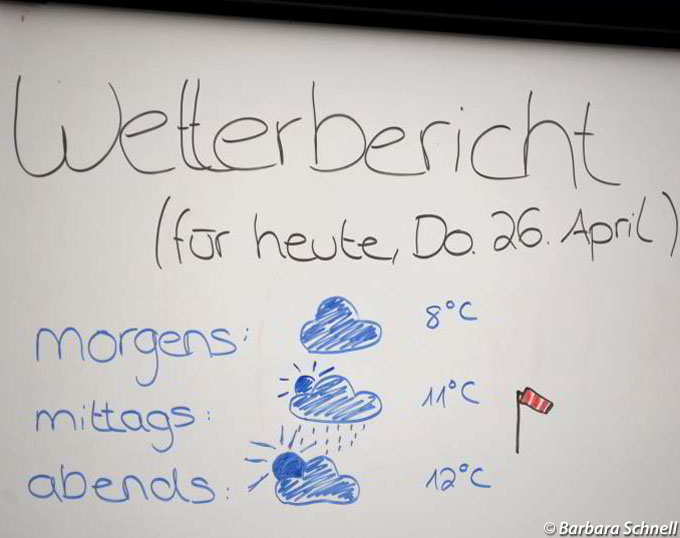 Wetterbericht
(für heute, Do. 26. April)
morgens: 8°C
mittags: 11°C
abends: 12°C
© Barbara Schnell